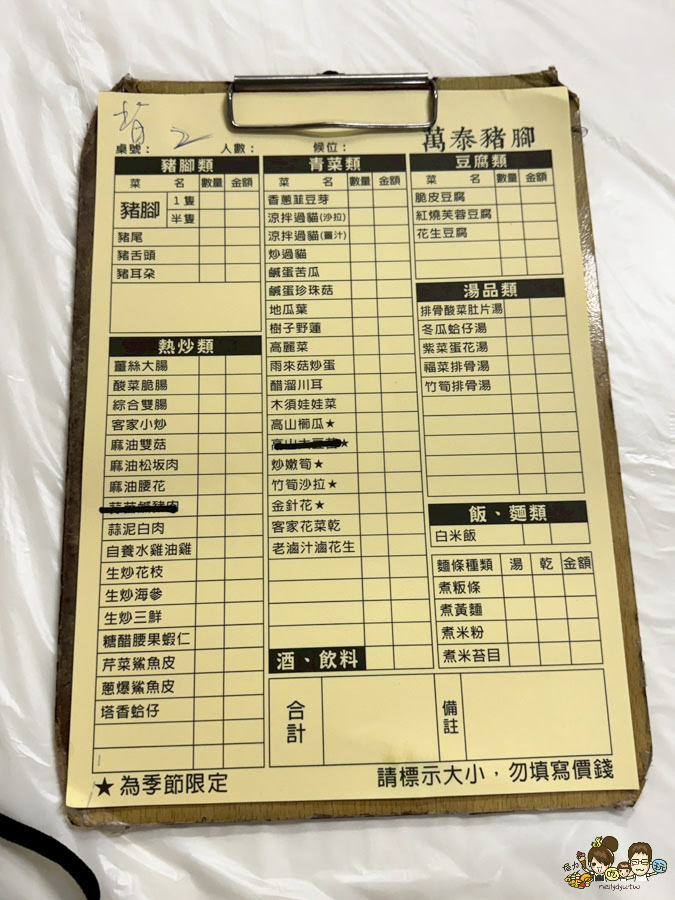 萬泰豬腳
桌號： 人數： 候位：
豬腳類
菜 名 數量 金額
豬腳 1隻
半隻
豬尾
豬舌頭
豬耳朵
熱炒類
薑絲大腸
酸菜脆腸
綜合雙腸
客家小炒
麻油雙菇
麻油松坂肉
麻油腰花
蒜泥白肉
自養水雞油雞
生炒花枝
生炒海參
生炒三鮮
糖醋腰果蝦仁
芹菜鯊魚皮
蔥爆鯊魚皮
塔香蛤仔
青菜類
菜 名 數量 金額
香蔥韮豆芽
涼拌過貓(沙拉)
涼拌過貓(薑汁)
炒過貓
鹹蛋苦瓜
鹹蛋珍珠菇
地瓜葉
樹子野蓮
高麗菜
雨來菇炒蛋
醋溜川耳
木須娃娃菜
高山櫛瓜★
炒嫩筍★
竹筍沙拉★
金針花★
客家花菜乾
老滷汁滷花生
酒、飲料
豆腐類
菜 名 數量 金額
脆皮豆腐
紅燒芙蓉豆腐
花生豆腐
湯品類
排骨酸菜肚片湯
冬瓜蛤仔湯
紫菜蛋花湯
福菜排骨湯
竹筍排骨湯
飯、麵類
白米飯
麵條種類 湯 乾 金額
煮粄條
煮黃麵
煮米粉
煮米苔目
合計
備註
★為季節限定
請標示大小，勿填寫價錢
neilydyu.tw